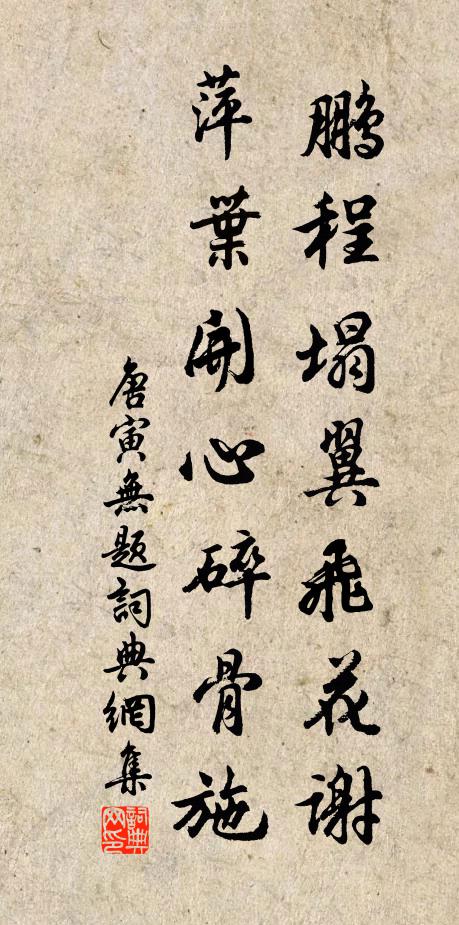 鵬程塌翼飛花謝
萍葉開心碎骨施
唐寅無題詞典網集
詞典網印